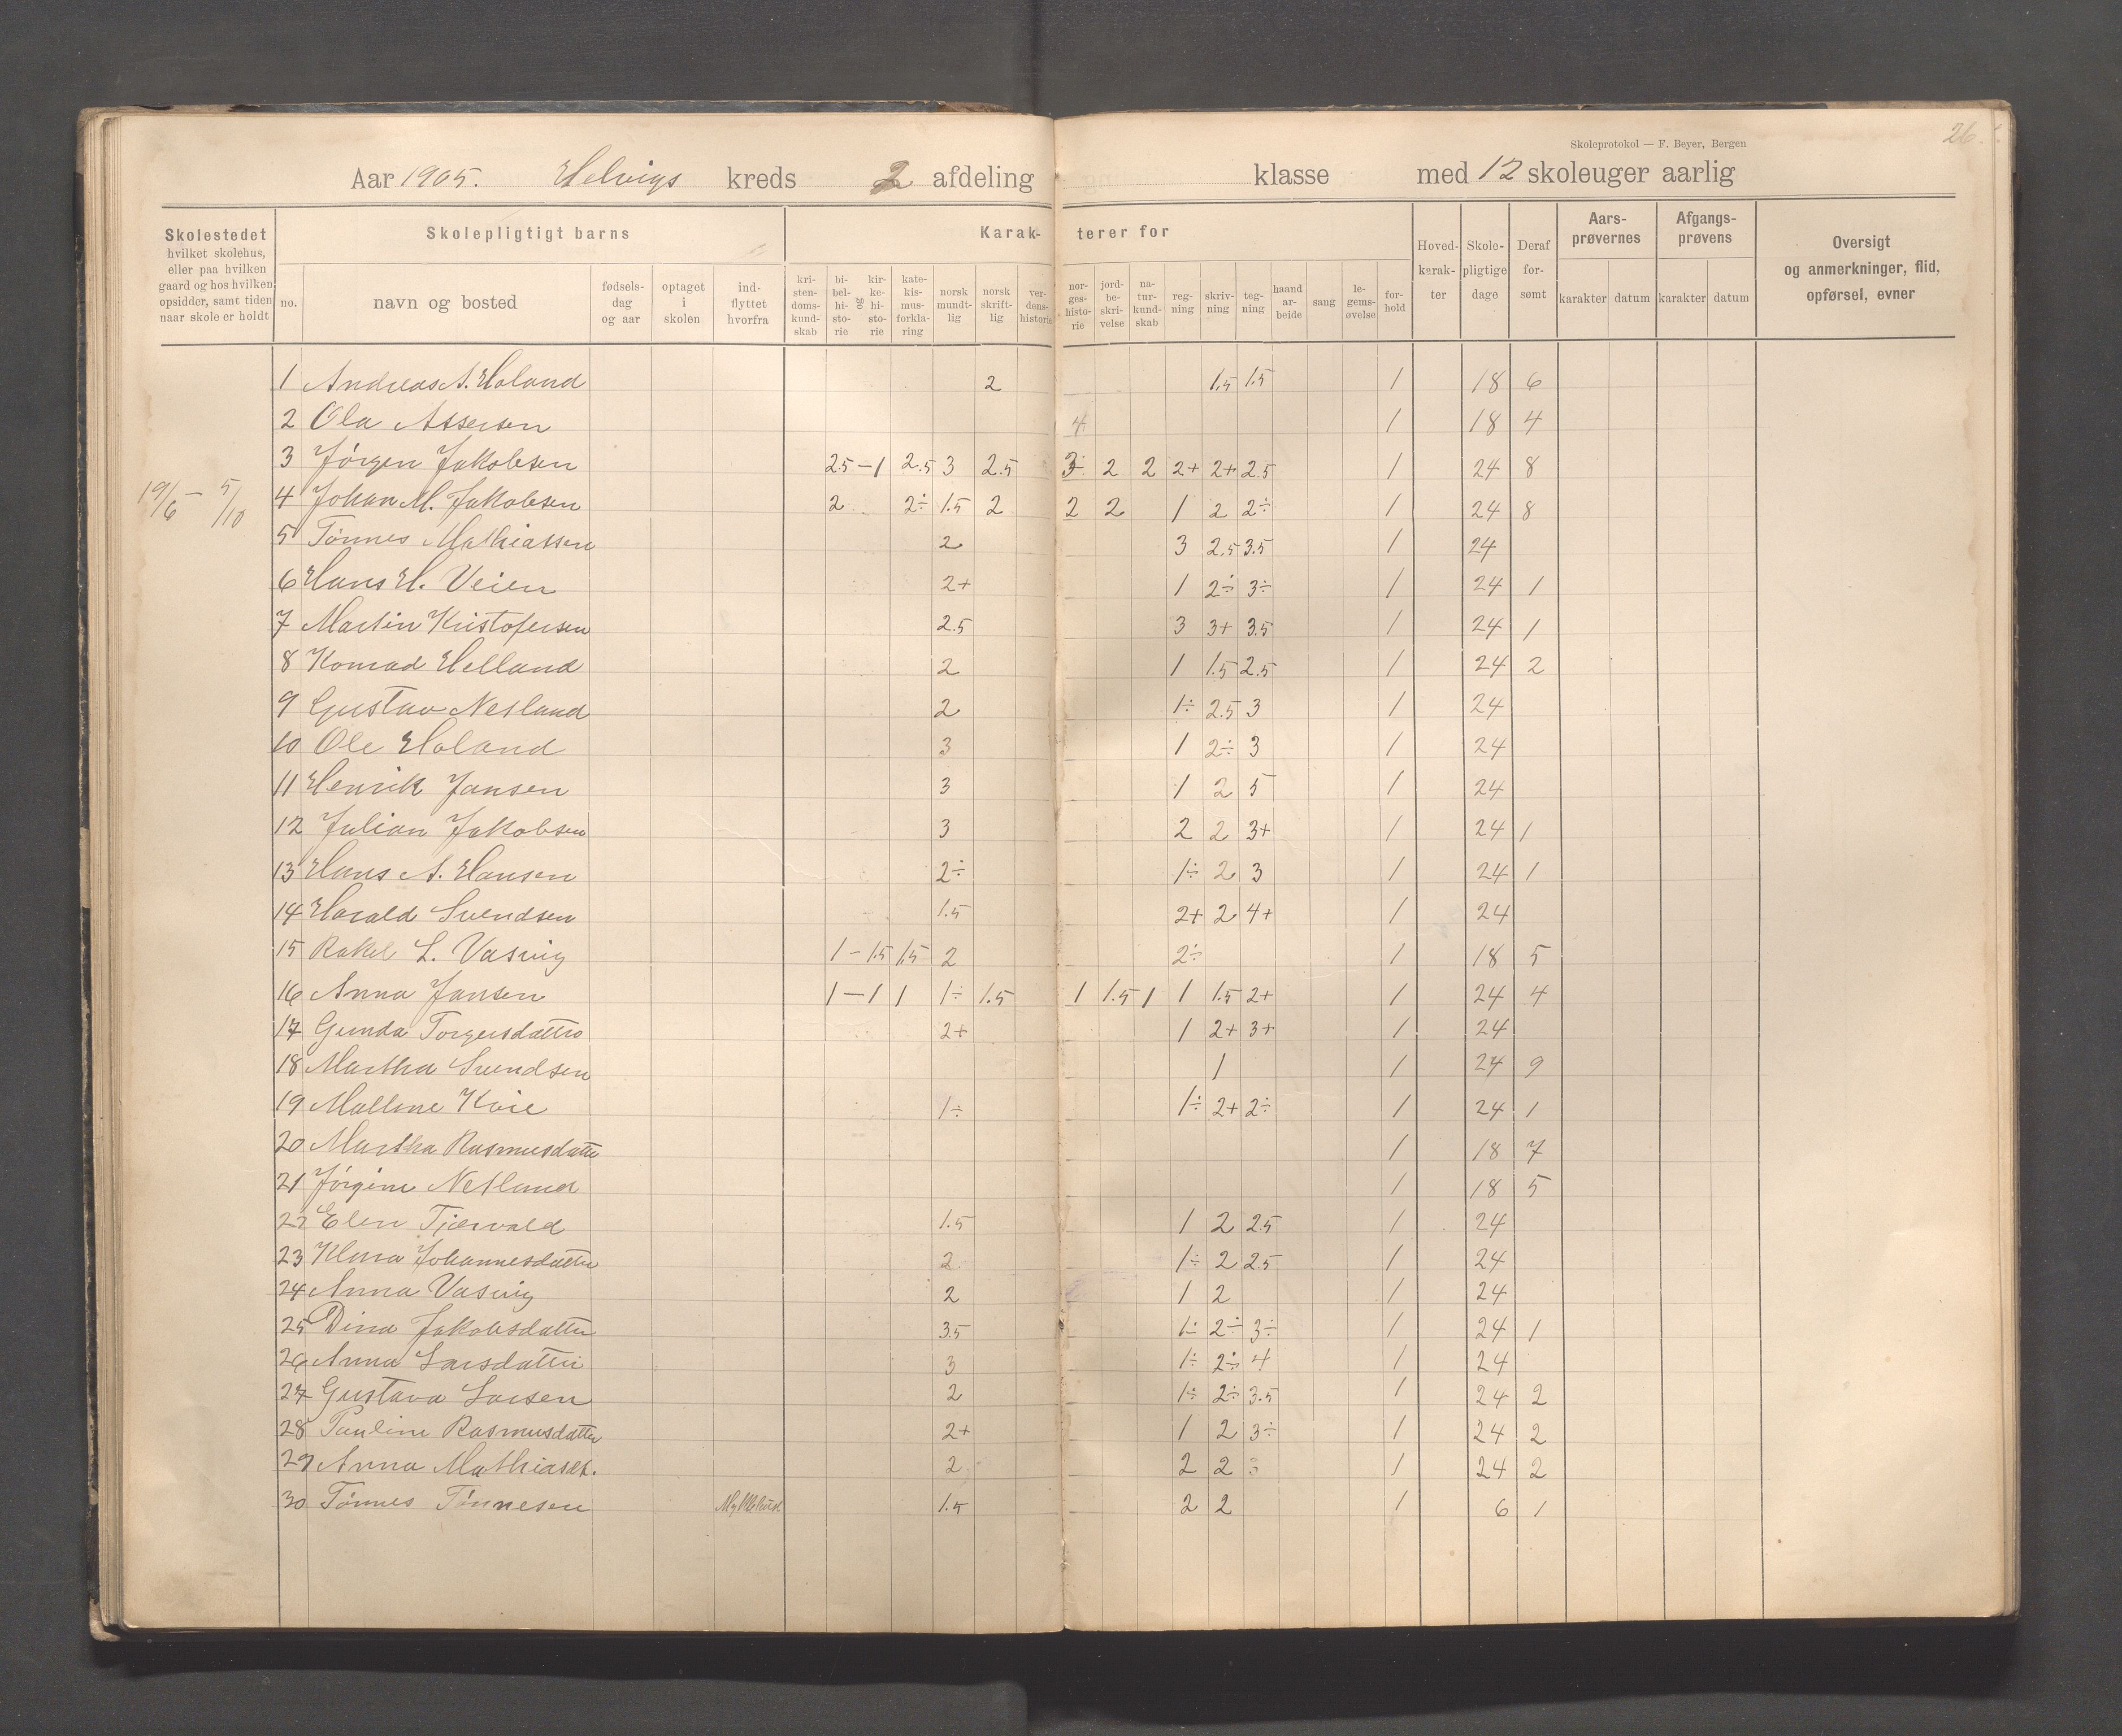 26.
Skoleprotokol — F. Beyer, Bergen
Aar 1905. Helvigs kreds 2 afdeling klasse med 12 skoleuger aarlig
Skolestedet hvilket skolehus, eller paa hvilken gaard og hos hvilken opsidder, samt tiden naar skole er holdt
Skolepligtigt barns
no. navn og bosted fødsels-dag og aar optaget i skolen ind-flyttet hvorfra
Karak- terer for
kri-sten-doms-kund-skab bi-bel-hi-sto-rie og kir-ke-hi-sto-rie kate-kis-mus-forkla-ring norsk mundt-lig norsk skrift-lig ver-dens-historie nor-ges-histo-rie jord-be-skri-velse na-tur-kund-skab reg-ning skriv-ning teg-ning haand ar-beide sang le-gems-øvelse for-hold
Hoved-karak-ter Skole-pligtige dage Deraf for-sømt
Aars-prøvernes karakter datum
Afgangs-prøvens karakter datum
Oversigt og anmerkninger, flid, opførsel, evner
1 Andreas A. Høland 2 1.5 1.5 1 18 6
2 Ola Assersen 4 1 18 4
3 Jørgen Jakobsen 2.5 – 1 2.5 3 2.5 3÷ 2 2 2+ 2+ 2.5 1 24 8
19/6 – 5/10
4 Johan M. Jakobsen 2 2÷ 1.5 2 2 2 1 2 2÷ 1 24 8
5 Tønnes Mathiassen 2 3 2.5 3.5 1 24
6 Hans H. Veien 2+ 1 2÷ 3÷ 1 24 1
7 Martin Kristofersen 2.5 3 3+ 3.5 1 24 1
8 Konrad Helland 2 1 1.5 2.5 1 24 2
9 Gustav Nesland 2 1÷ 2.5 3 1 24
10 Ole Høland 3 1 2÷ 3 1 24
11 Henrik Jansen 3 1 2 5 1 24
12 Julian Jakobsen 3 2 2 3+ 1 24 1
13 Hans A. Hansen 2÷ 1÷ 2 3 1 24 1
14 Harald Svendsen 1.5 2+ 2 4+ 1 24
15 Rakel L. Vasvig 1 – 1.5 1.5 2 2÷ 1 18 5
16 Anna Jansen 1 – 1 1 1÷ 1.5 1 1.5 1 1 1.5 2+ 1 24 4
17 Gunda Torgersdatter 2+ 1 2+ 3+ 1 24
18 Martha Svendsen 1 1 24 9
19 Mallene Kvie 1÷ 1÷ 2+ 2÷ 1 24 1
20 Martha Rasmusdatter 1 18 7
21 Jørgine Nesland 1 18 5
22 Elen Tjørvald 1.5 1 2 2.5 1 24
23 Klara Johannesdatter 2 1÷ 2 2.5 1 24
24 Anna Vasvig 2 1 2 1 24
25 Dina Jakobsdatter 3.5 1÷ 2÷ 3÷ 1 24 1
26 Anna Larsdatter 3 1÷ 2÷ 4 1 24
27 Gustava Larsen 2 1÷ 2÷ 3.5 1 24 2
28 Pauline Rasmusdatter 2+ 1 2 3÷ 1 24 2
29 Anna Mathiasdt. 2 2 2 3 1 24 2
30 Tønnes Tønnesen 1.5 2 2 1 6 1